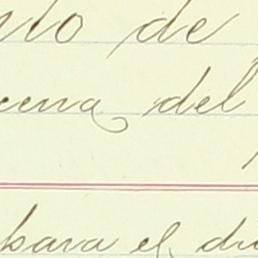 nto de
cena del
bara el di